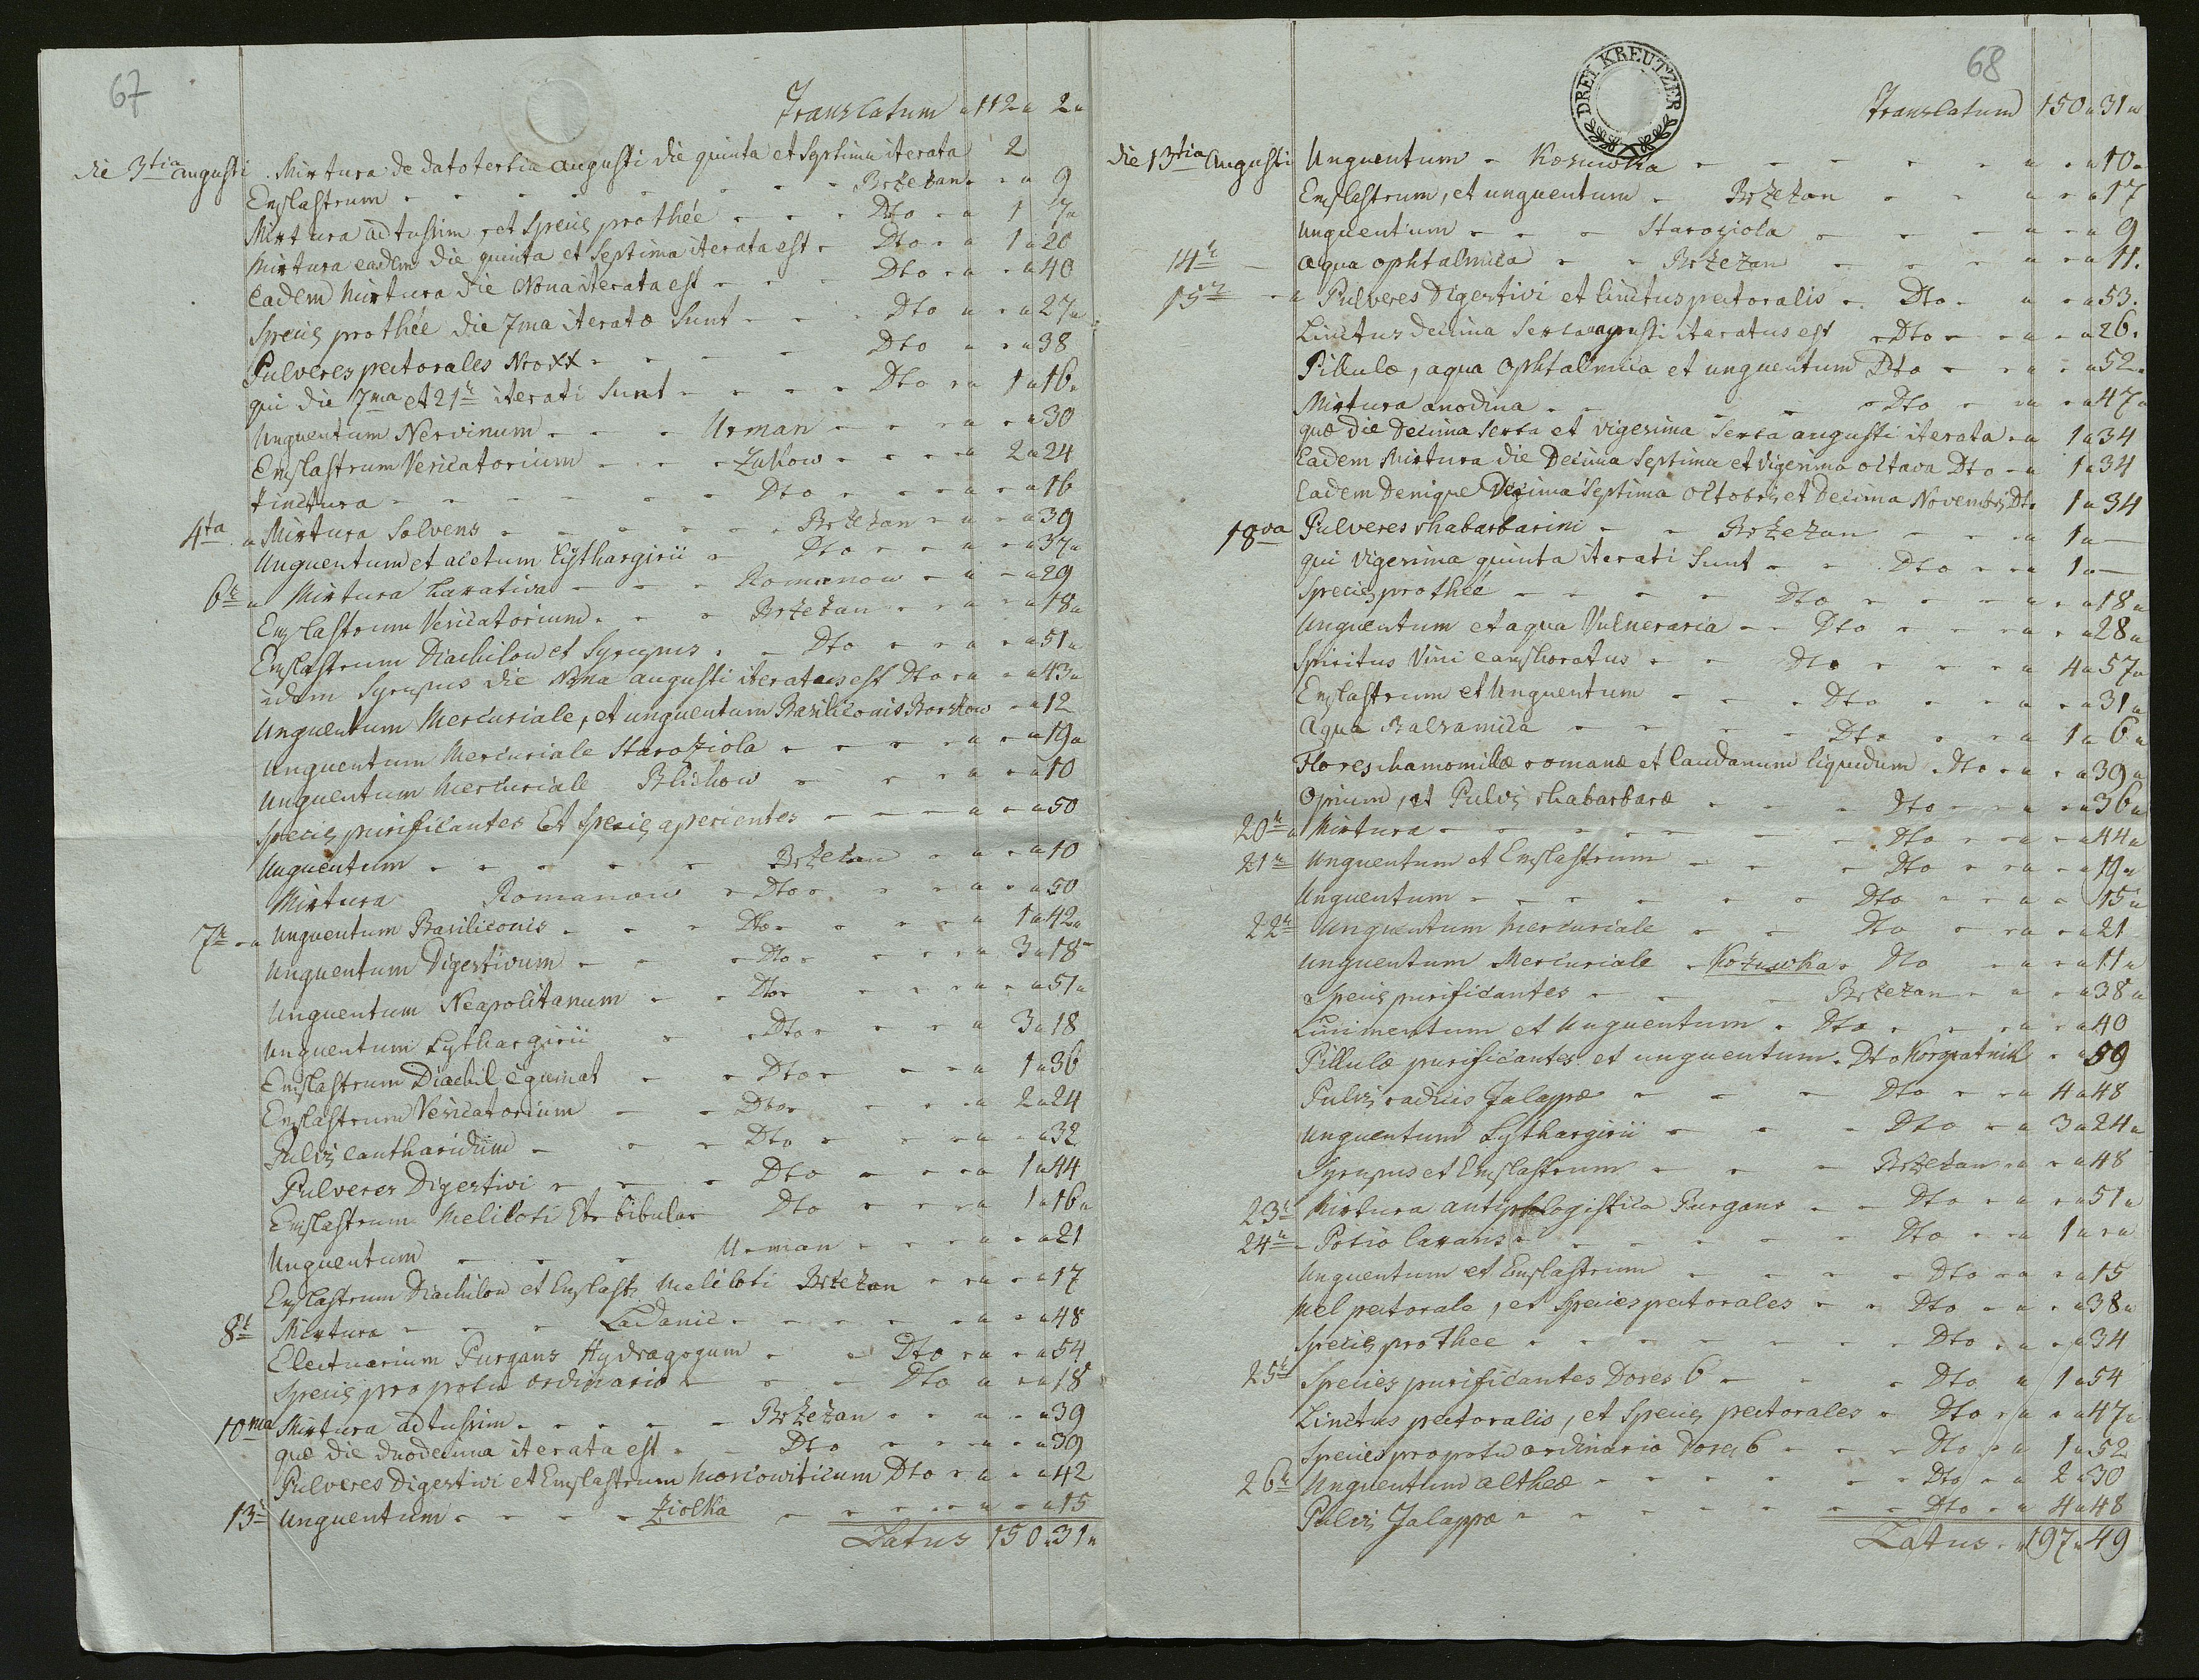 67
Translatum " 112 " 2 "
die 3tia augusti . Mixtura de dato tertia augusti die quinta et Syptima iterata 2
Emplastrum - - - - - - - Brzezan - - " 9
Mixtura ad tussim, et Speciς pro thée - - - Dto - " 1 " 7 "
Mixtura eadem die quinta et Septima iterata est - Dto - " 1 " 20
Eadem Mixtura die Nona iterata est - - - Dto - " - " 40
Speciς pro thée die 7ma iteratæ Sunt - - - Dto " - " 27 "
Pulveres pectorales Nro XX - - - - Dto " - " 38
qui die 7ma et 21t iterati Sunt - - - Dto - " 1 " 16 "
Unguentum Nervinum - - - Urman - - - " - " 30
Emplastrum Vesicatorium - - - Zukow - - - " 2 " 24
tinctura - - - - - - Dto - - - " - " 16
4ta " Mixtura Solvens - - - - - Brzezan - " - " 39
Unguentum et acetum Lythargirii - Dto - - - " - " 37 "
6t " Mixtura Laxativa - - - Romanow - " - " 29
Emplastrum Vesicatorium - - - Brzezan - - " - " 18 "
Emplastrum Diachilon et Syrupus - - Dto - - - " - " 51 "
idem Syrupus die Nona augusti iteratus est Dto - " - " 43 "
Unguentum Mercuriale, et unguentum Basiliconis Borskow - " 12
Unguentum Mercuriale Staroziola - - - - " - " 19 "
Unguentum Mercuriale Blichow - - - - " - " 10
Speciς purificantes Et Speciς aperientes - - - - " - " 50
Unguentum - - - - - - Brzezan - - " - " 10
Mixtura Romanow - Dto - - - " - " 50
7t - " Unguentum Basiliconis - - - Dto - - - - " 1 " 42 "
Unguentum Digestivum - - - Dto - - - - " 3 " 18 "
Unguentum Neapolitanum - - Dto - - - - " - " 51 "
Unguentum Lythargirii - - Dto - - - - " 3 " 18
Emplastrum Diachil čgumat - - Dto - - - - " 1 " 36
Emplastrum Vesicatorium - - Dto - - - - " 2 " 24
Pulvς cantharidum - - - Dto - - - " - " 32
Pulveres Digestivi - - - - Dto - - - " 1 " 44
Emplastrum Meliloti Et bibulae Dto - - - " 1 " 16 "
Unguentum - - - - Urman - - - " - " 21
Emplastrum Diachilon et Emplast. Meliloti Brzezan - - " - " 17
8t Mixtura - - - Ladanie - - - - - " - " 48
Electuarium Purgans Hydragogum - - Dto - " - " 54
Speciς pro potu ordinario - - - Dto " - " 18
10ma Mixtura ad tussim - - - - - Brzezan - - " - " 39
quæ die duodecima iterata est - - Dto - - - " - " 39
Pulveres Digestivi et Emplastrum Moscowiticum Dto - " - " 42
13t Unguentum - - - - Ziolka - - - - " - " 15
Latus 150 " 31 "
68
DREI KREUTZER
Translatum 150 " 31 "
die 13tia Augusti Unguentum - Kozuwka - - - - - " - " 10 "
Emplastrum, et unguentum - Brzezan - - " - " 17
Unguentum - - - Staroziola - - - " - " 9
14t - Aqua ophtalmica - - Brzezan - - - " - " 11.
15t - " Pulveres Digestivi et linctus pectoralis - Dto - " - " 53.
Linctus decima Sexta augusti iteratus est - Dto - - " - " 26.
Pillulæ, aqua Ophtalmica et unguentum Dto - - " - " 52 "
Mixtura anodina - - - - - Dto - " - " 47 "
quæ die Decima Sexta et vigesima Sexta augusti iterata - " 1 " 34
Eadem Mixtura die Decima Septima et Vigesima octava Dto - " 1 " 34
Eadem Denique Vigesima Septima Octobrς et Decima Novembrς Dto 1 " 34
18va Pulveres rhabarbarini - - Brzezan - - - " 1 " —
qui Vigesima quinta iterati Sunt - - Dto - - " 1 " —
Speciς pro thée - - - - Dto - - - " - " 18 "
Unguentum et aqua Vulneraria - - Dto - - - " - " 28 "
Spiritus Vini camphoratus - - Dto - - - " 4 " 57 "
Emplastrum et Unguentum - - - Dto - - " - " 31 "
Aqua Balsamica - - - - Dto - - " 1 " 6 "
Flores chamomillæ romanæ et laudanum liquidum - Dto - " - " 39 "
Opium, et Pulvς rhabarbaræ - - - Dto - - " - " 36 "
20t " Mixtura - - - - - - - Dto - - " - " 44 "
21t Unguentum et Emplastrum - - - Dto - - " - " 19 "
Unguentum - - - - - - Dto - - " " 15 "
22t Unguentum Mercuriale - - Dto - - " - " 21
Unguentum Mercuriale - Kozuwka - Dto - " - " 11 "
Speciς purificantes - - - Brzezan - " - " 38 "
Linimentum et Unguentum - Dto - - - " - " 40
Pillulæ purificantes et unguentum - Dto Korpratnik - " 59
Pulvς radicis Jalappæ - - - Dto - - " 4 " 48
Unguentum Lythargirii - - - Dto - " 3 " 24 "
Syrupus et Emplastrum - - - Brzezan - " - " 48
23t Mixtura antiphlogistica Purgans - - Dto - " - " 51 "
24t - Potio laxans - - - - - - Dto - - " 1 " - "
Unguentum et Emplastrum - - - - Dto - " - " 15
Mel pectorale, et Species pectorales - - Dto - " - " 38 "
Speciς pro Thee - - - - - - - Dto - " - " 34
25t Species purificantes Doses 6 - - - Dto " 1 " 54
Linctus pectoralis, et Speciς pectorales - Dto - " - " 47 "
Species pro potu ordinario Doses 6 - - - Dto - " 1 " 52
26t Unguentum altheæ - - - - - - Dto - " 2 " 30
Pulvς Jalappæ - - - - - - Dto - " 4 " 48
Latus - " 197 " 49